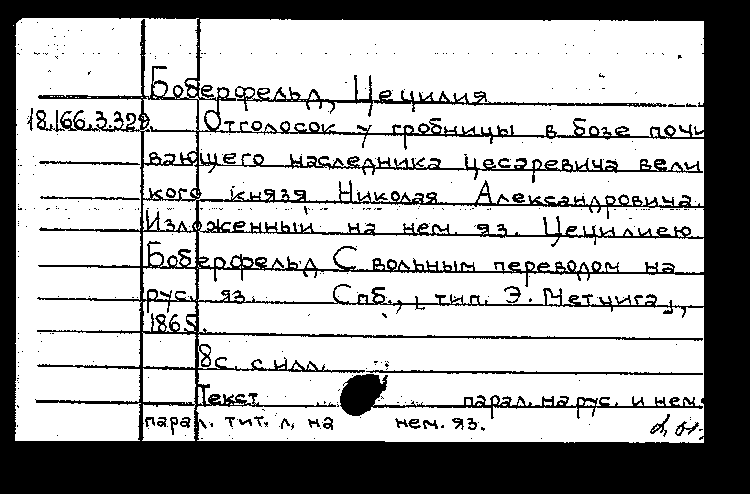 Боберфельд, Цецилия
18.166.3.329. Отголосок у гробницы в бозе почи
вающего наследника цесаревича вели
кого князя Николая Александровича.
Изложенный на нем. яз. Цецилиею
Боберфельд С вольным переводом на
рус. яз. Спб., [тип. Э. Метцига],
1865.
8с. с илл.
Текст парал. на рус. и нем.
парал. тит. л. на нем. яз.